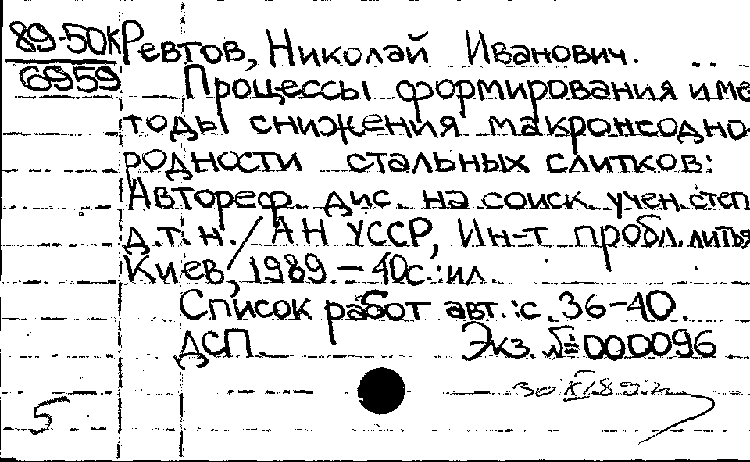 89-50к Ревтов, Николай Иванович.
6959 Процессы формирования и ме
тоды снижения макронеодно
родности стальных слитков:
Автореф. дис. на соиск. учен. степ
д.т.н. / АН УССР, Ин-т пробл. литья
Киев, 1989. - 40с.: ил.
Список работ авт.: с. 36-40.
ДСП. Экз. № 000096
5